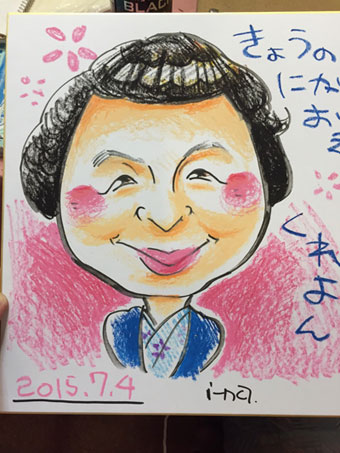 BLACK
きょうの
にが
おえ
くれよん
2015.7.4
i-na.